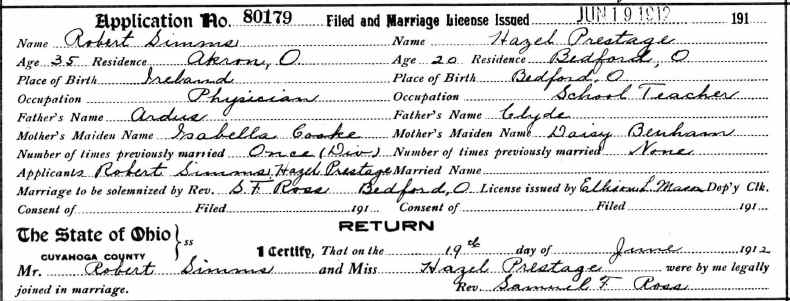 Application No. 80179 Filed and Marriage License Issued JUN 19 1912 191
Name Robert Simms Name Hazel Prestage
Age 35 Residence Akron, O. Age 20 Residence Bedford, O
Place of Birth Ireland Place of Birth Bedford, O
Occupation Physician Occupation School Teacher
Father's Name Ardus Father's Name Clyde
Mother's Maiden Name Isabella Cooke Mother's Maiden Name Daisy Benham
Number of times previously married Once (Div) Number of times previously married None
Applicants Robert Simms, Hazel Prestage Married Name
Marriage to be solemnized by Rev. S. F. Ross Bedford, O License issued by Ellison L. Mason Dep'y Clk.
Consent of Filed 191 Consent of Filed 191
RETURN
The State of Ohio } ss
CUYAHOGA COUNTY I Certify, That on the 19th day of June 1912
Mr. Robert Simms and Miss Hazel Prestage were by me legally
joined in marriage. Rev. Samuel F. Ross